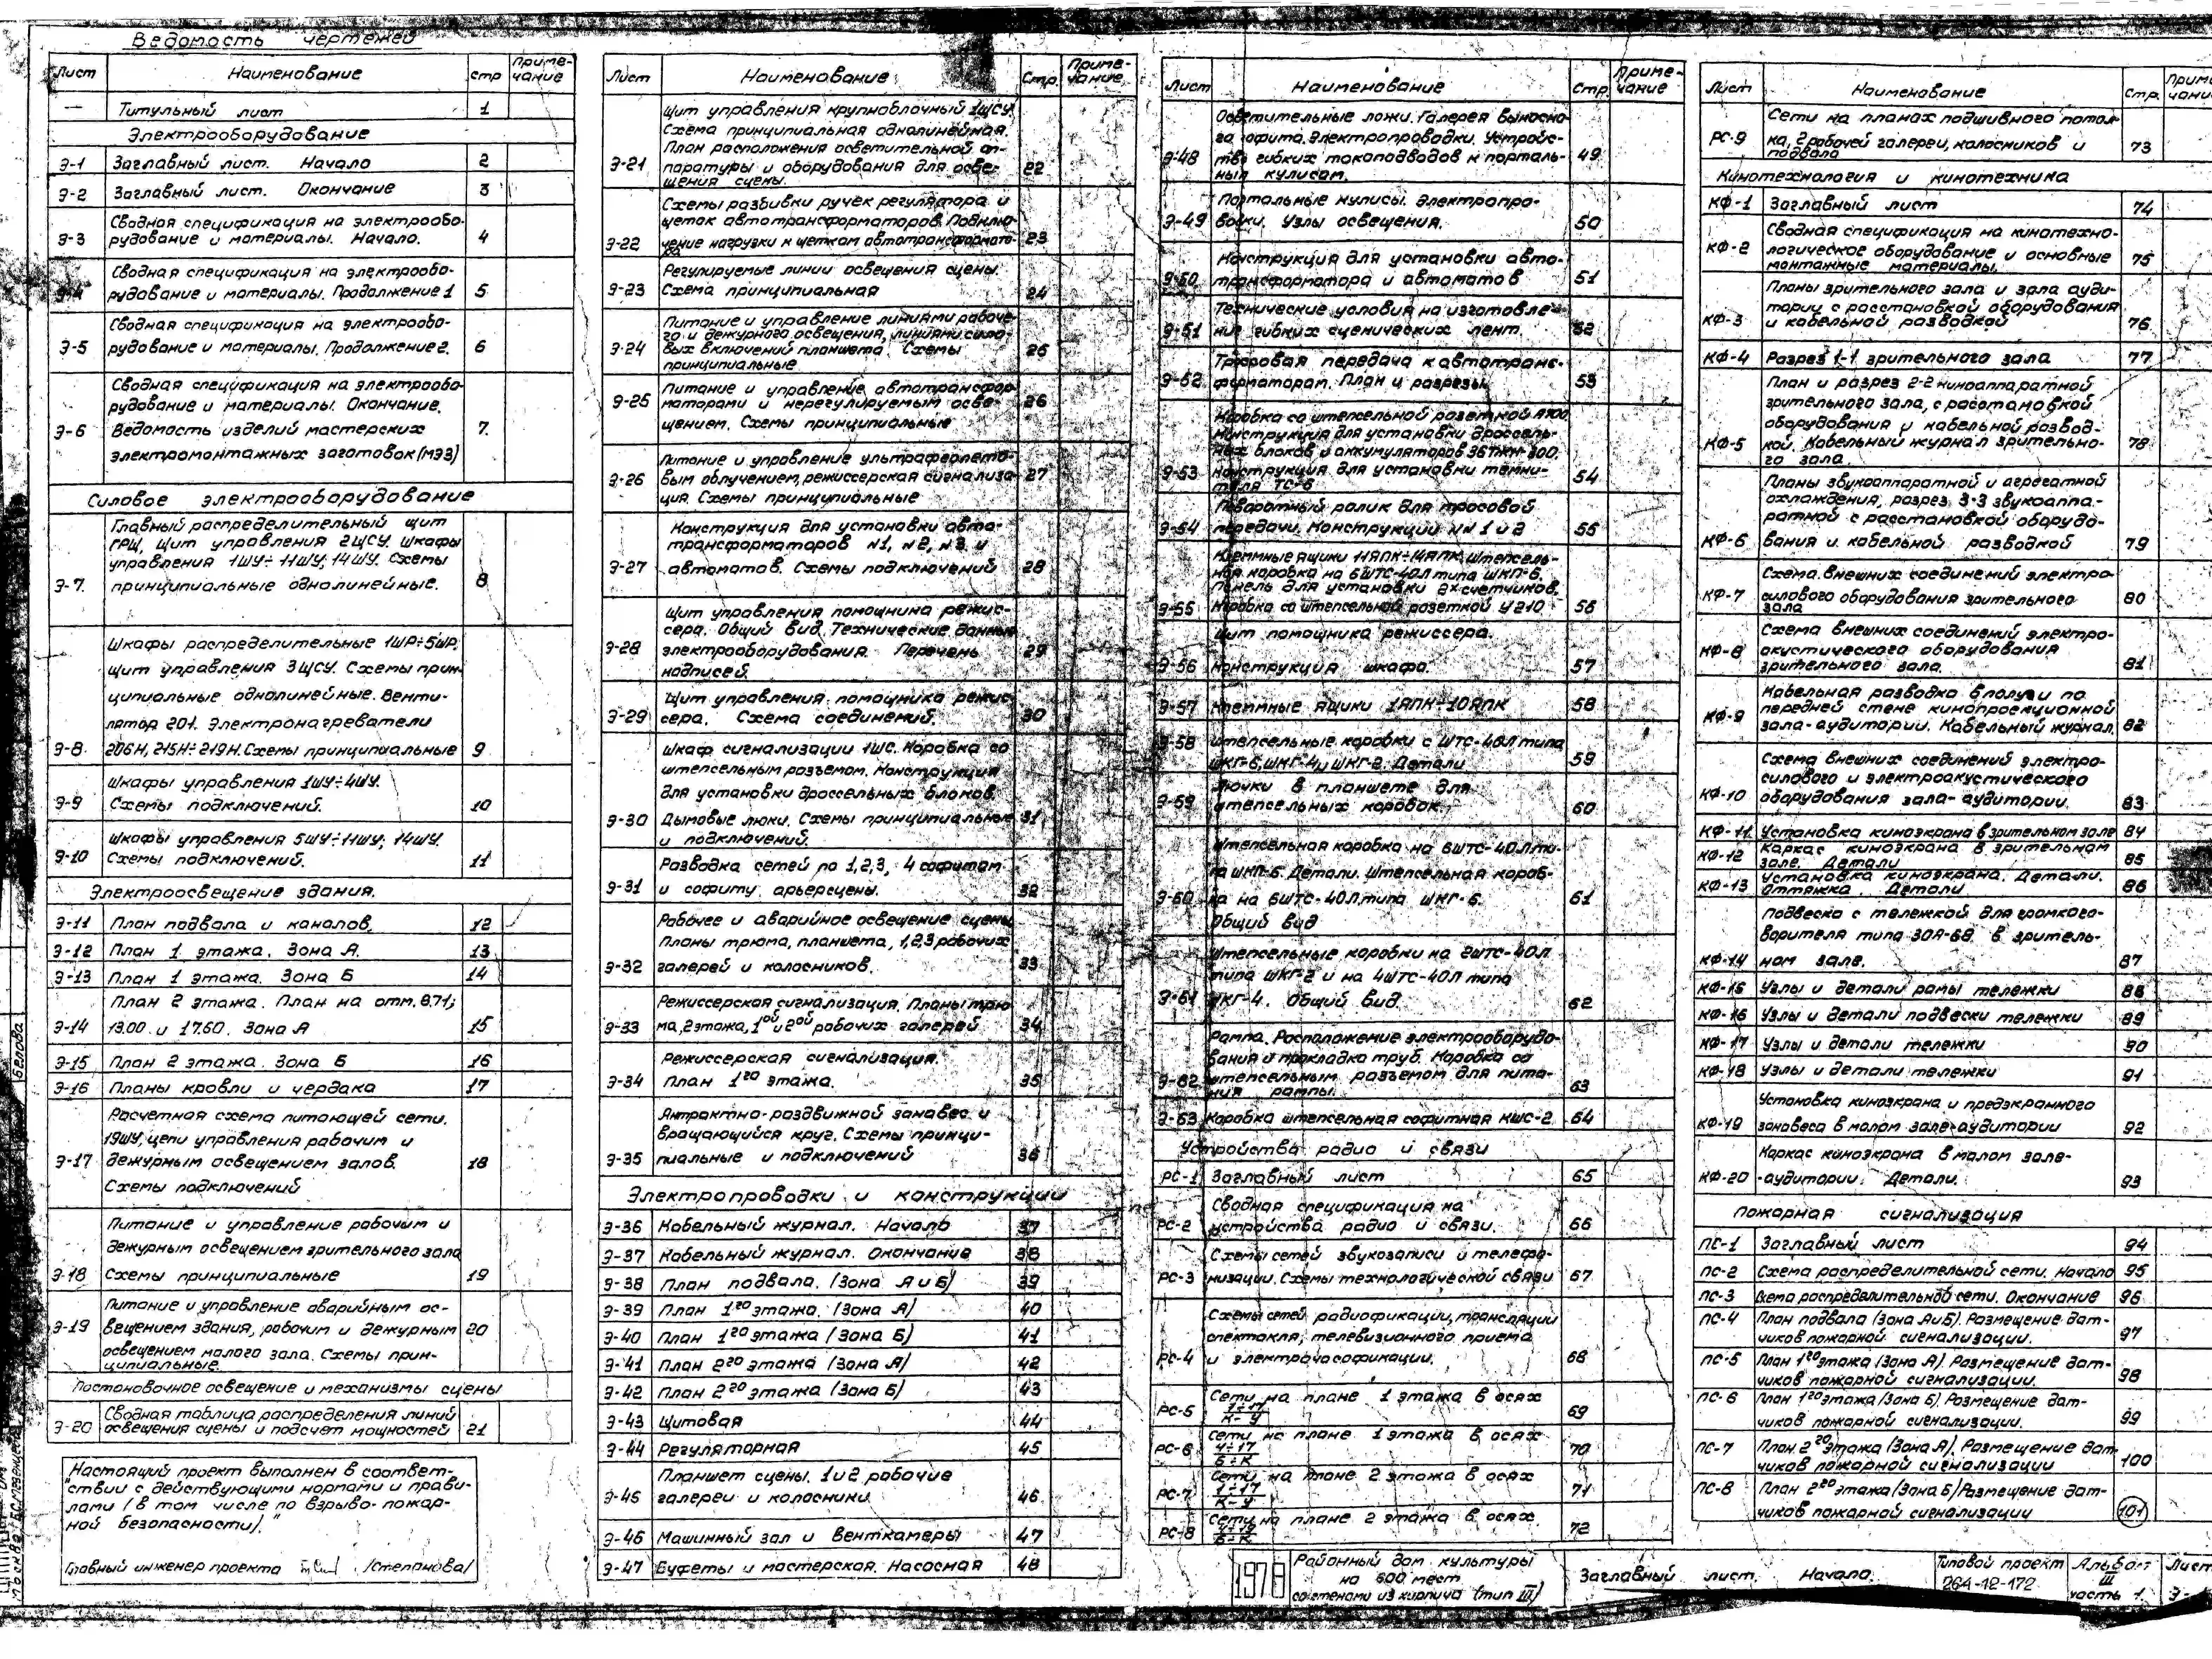 Ведомость чертежей
Лист Наименование стр Приме-
чание
— Титульный лист 1
Электрооборудование
Э-1 Заглавный лист. Начало 2
Э-2 Заглавный лист. Окончание 3
Сводная спецификация на электрообо-
Э-3 рудование и материалы. Начало. 4
Сводная спецификация на электрообо-
Э-4 рудование и материалы. Продолжение 1 5
Сводная спецификация на электрообо-
Э-5 рудование и материалы. Продолжение 2. 6
Сводная спецификация на электрообо-
рудование и материалы. Окончание.
Э-6 Ведомость изделий мастерских 7.
электромонтажных заготовок (МЭЗ)
Силовое электрооборудование
Главный распределительный щит
ГРЩ, Щит управления 2ЩСУ. Шкафы
управления 1ШУ÷11ШУ, 14ШУ. Схемы
Э-7. принципиальные однолинейные. 8
Шкафы распределительные 1ШР÷5ШР,
щит управления 3ЩСУ. Схемы прин-
ципиальные однолинейные. Венти-
лятор 201. Электронагреватели
Э-8. 206Н, 215Н÷219Н. Схемы принципиальные 9
Шкафы управления 1ШУ÷4ШУ.
Э-9 Схемы подключений. 10
Шкафы управления 5ШУ÷11ШУ; 14ШУ.
Э-10 Схемы подключений. 11
Электроосвещение здания.
Э-11 План подвала и каналов. 12
Э-12 План 1 этажа. Зона А. 13
Э-13 План 1 этажа. Зона Б 14
План 2 этажа. План на отм. 8.71;
Э-14 13.00 и 17.60. Зона А 15
Э-15 План 2 этажа. Зона Б 16
Э-16 Планы кровли и чердака 17
Расчетная схема питающей сети.
19ШУ, цепи управления рабочим и
Э-17 дежурным освещением залов. 18
Схемы подключений
Питание и управление рабочим и
дежурным освещением зрительного зала
Э-18 Схемы принципиальные 19
Питание и управление аварийным ос-
Э-19 вещением здания, рабочим и дежурным 20
освещением малого зала. Схемы прин-
ципиальные.
Постановочное освещение и механизмы сцены
Сводная таблица распределения линий
Э-20 освещения сцены и подсчет мощностей 21
"Настоящий проект выполнен в соответ-
ствии с действующими нормами и прави-
лами (в том числе по взрыво-пожар-
ной безопасности)."
Главный инженер проекта /Степанова/
Белова
Лист Наименование Стр. Приме-
чание
Щит управления крупноблочный 1ЩСУ.
Схема принципиальная однолинейная.
План расположения осветительной ап-
Э-21 паратуры и оборудования для осве- 22
щения сцены.
Схемы разбивки ручек регулятора и
щеток автотрансформаторов. Подклю-
Э-22 чение нагрузки к щеткам автотрансформато- 23
ра
Регулируемые линии освещения сцены.
Э-23 Схема принципиальная 24
Питание и управление линиями рабоче-
го и дежурного освещения, линиями сило-
Э-24 вых включений планшета. Схемы 25
принципиальные
Питание и управление автотрансфор-
Э-25 маторами и нерегулируемым осве- 26
щением. Схемы принципиальные
Питание и управление ультрафиолето-
Э-26 вым облучением, режиссерская сигнализа- 27
ция. Схемы принципиальные
Конструкция для установки авто-
трансформаторов №1, №2, №3 и
Э-27 автоматов. Схемы подключений 28
Щит управления помощника режис-
сера. Общий вид. Технические данные
Э-28 электрооборудования. Перечень 29
надписей.
Щит управления помощника режис-
Э-29 сера. Схема соединений. 30
Шкаф сигнализации 1ШС. Коробка со
штепсельным разъемом. Конструкция
для установки дроссельных блоков.
Э-30 Дымовые люки. Схемы принципиальные 31
и подключений.
Разводка сетей по 1,2,3, 4 софитам
Э-31 и софиту арьерсцены. 32
Рабочее и аварийное освещение сцены
Планы трюма, планшета, 1,2,3 рабочих
Э-32 галерей и колосников. 33
Режиссерская сигнализация. Планы трю-
Э-33 ма, 2 этажа, 1ой и 2ой рабочих галерей 34
Режиссерская сигнализация.
Э-34 План 1го этажа. 35
Антрактно-раздвижной занавес и
вращающийся круг. Схемы принци-
Э-35 пиальные и подключений 36
Электропроводки и конструкции
Э-36 Кабельный журнал. Начало 37
Э-37 Кабельный журнал. Окончание 38
Э-38 План подвала. (Зона А и Б) 39
Э-39 План 1го этажа. (Зона А) 40
Э-40 План 1го этажа (Зона Б) 41
Э-41 План 2го этажа (Зона А) 42
Э-42 План 2го этажа (Зона Б) 43
Э-43 Щитовая 44
Э-44 Регуляторная 45
Планшет сцены. 1 и 2 рабочие
Э-45 галереи и колосники. 46
Э-46 Машинный зал и венткамеры 47
Э-47 Буфеты и мастерская. Насосная 48
Лист Наименование Стр. Приме-
чание
Осветительные ложи. Галерея выносно-
го софита. Электропроводки. Устройс-
Э-48 тво гибких токоподводов к порталь- 49
ным кулисам.
Портальные кулисы. Электропро-
Э-49 водки. Узлы освещения. 50
Конструкция для установки авто-
Э-50 трансформатора и автоматов 51
Технические условия на изготовле-
Э-51 ние гибких сценических лент. 52
Тросовая передача к автотранс-
Э-52 форматорам. План и разрезы 53
Коробка со штепсельной розеткой
Конструкция для установки дроссель-
ных блоков и аккумуляторов 36ТЖН-300.
Э-53 Конструкция для установки темни-
теля ТС-6 54
Поворотный ролик для тросовой
Э-54 передачи. Конструкции №№ 1 и 2 55
Клеммные ящики 11ЯПК÷14ЯПК, штепсель-
ная коробка на 6ШТС-40Л типа ШКП-6,
панель для установки 2х счетчиков.
Э-55 Коробка со штепсельной розеткой У210 56
Щит помощника режиссера.
Э-56 Конструкция шкафа. 57
Э-57 Клеммные ящики 1ЯПК÷10ЯПК 58
Э-58 Штепсельные коробки с ШТС-40Л типа
ШКГ-6, ШКГ-4, ШКГ-2. Детали 59
Лючки в планшете для
Э-59 штепсельных коробок. 60
Штепсельная коробка на 6ШТС-40Л ти-
па ШКП-6. Детали. Штепсельная короб-
Э-60 ка на 6ШТС-40Л типа ШКГ-6. 61
Общий вид
Штепсельные коробки на 2ШТС-40Л
типа ШКГ-2 и на 4ШТС-40Л типа
Э-61 ШКГ-4. Общий вид. 62
Рампа. Расположение электрооборудо-
вания и прокладка труб. Коробка со
Э-62 штепсельным разъемом для пита- 63
ния рампы.
Э-63 Коробка штепсельная софитная КШС-2. 64
Устройства радио и связи
РС-1 Заглавный лист 65
Сводная спецификация на
РС-2 устройства радио и связи. 66
Схемы сетей звукозаписи и телефо-
РС-3 низации. Схемы технологической связи 67
Схемы сетей радиофикации, трансляции
спектакля, телевизионного приема
РС-4 и электрочасофикации. 68
Сети на плане 1 этажа в осях
РС-5 1÷17
К-У 69
Сети на плане 1 этажа в осях
РС-6 70
Б÷К
Сети на плане 2 этажа в осях
РС-7 1÷17 71
К-У
Сети на плане 2 этажа в осях
РС-8 72
Б÷К
Лист Наименование Стр.
Сети на планах подшивного потол-
РС-9 ка, 2 рабочей галереи, колосников и 73
подвала
Кинотехнология и кинотехника
КФ-1 Заглавный лист 74
Сводная спецификация на кинотехно-
КФ-2 логическое оборудование и основные 75
монтажные материалы.
Планы зрительного зала и зала ауди-
тории с расстановкой оборудования
КФ-3 и кабельной разводкой 76
КФ-4 Разрез 1-1 зрительного зала 77
План и разрез 2-2 киноаппаратной
зрительного зала, с расстановкой
оборудования и кабельной развод-
КФ-5 кой. Кабельный журнал зрительно- 78
го зала.
Планы звукоаппаратной и агрегатной
охлаждения, разрез 3-3 звукоаппа-
ратной с расстановкой оборудо-
КФ-6 вания и кабельной разводкой 79
Схема внешних соединений электро-
КФ-7 силового оборудования зрительного 80
зала
Схема внешних соединений электро-
КФ-8 акустического оборудования
зрительного зала. 81
Кабельная разводка в полу и по
передней стене кинопроекционной
КФ-9 зала-аудитории. Кабельный журнал. 82
Схема внешних соединений электро-
силового и электроакустического
КФ-10 оборудования зала-аудитории. 83
КФ-11 Установка киноэкрана в зрительном зале 84
КФ-12 Каркас киноэкрана в зрительном
зале. Детали 85
КФ-13 Установка киноэкрана. Детали.
Оттяжка. Детали 86
Подвеска с тележкой для громкого-
ворителя типа 30А-68 в зритель-
КФ-14 ном зале. 87
КФ-15 Узлы и детали рамы тележки 88
КФ-16 Узлы и детали подвески тележки 89
КФ-17 Узлы и детали тележки 90
КФ-18 Узлы и детали тележки 91
Установка киноэкрана и предэкранного
КФ-19 занавеса в малом зале-аудитории 92
Каркас киноэкрана в малом зале-
КФ-20 -аудитории. Детали. 93
Пожарная сигнализация
ПС-1 Заглавный лист 94
ПС-2 Схема распределительной сети. Начало 95
ПС-3 Схема распределительной сети. Окончание 96
ПС-4 План подвала (Зона А и Б). Размещение дат-
чиков пожарной сигнализации. 97
ПС-5 План 1го этажа (Зона А). Размещение дат-
чиков пожарной сигнализации. 98
ПС-6 План 1го этажа (Зона Б). Размещение дат-
чиков пожарной сигнализации. 99
ПС-7 План 2го этажа (Зона А). Размещение дат-
чиков пожарной сигнализации 100
ПС-8 План 2го этажа (Зона Б) Размещение дат-
чиков пожарной сигнализации 101
1978
Районный дом культуры
на 600 мест
со стенами из кирпича (тип III)
Заглавный лист. Начало.
Типовой проект
264-12-172
Альбом
III
часть 1.
Лист